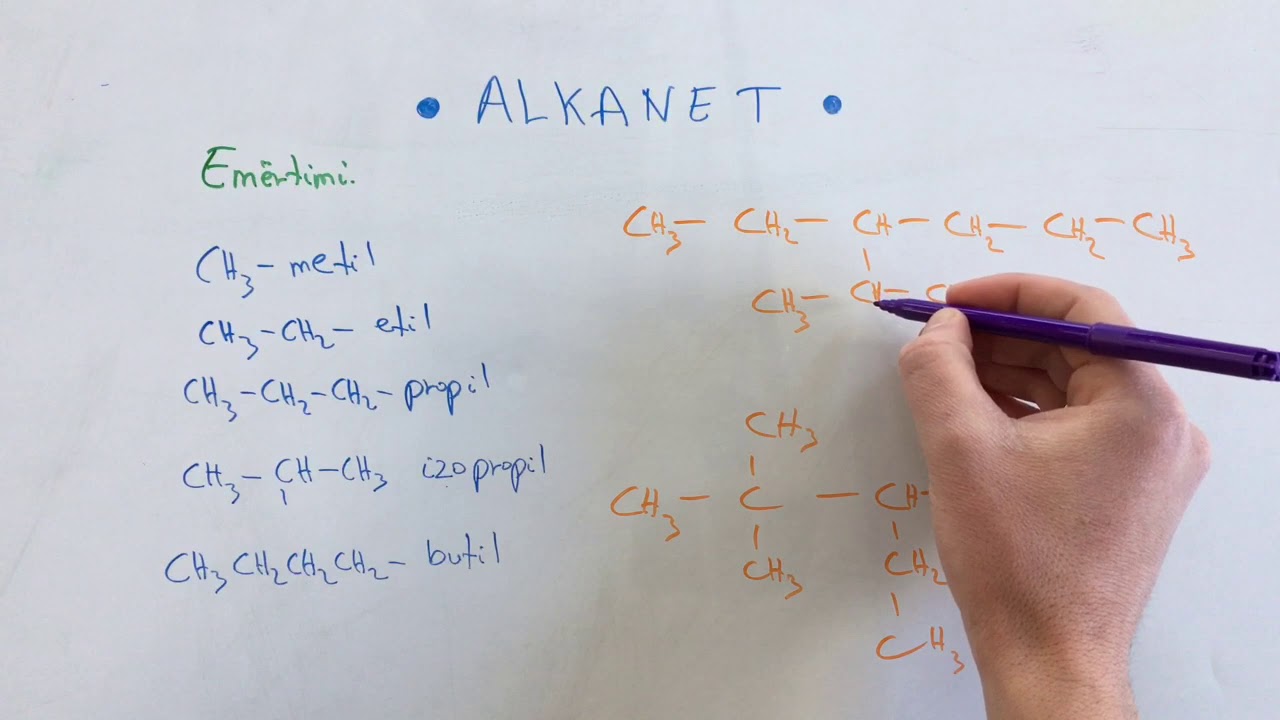 • ALKANET •
Emërtimi:
CH₃– metil
CH₃–CH₂– etil
CH₃–CH₂–CH₂– propil
CH₃–CH–CH₃ izopropil
CH₃CH₂CH₂CH₂– butil
CH₃– CH₂– CH–CH₂–CH₂–CH₃
CH₃–CH–
CH₃
CH₃–C–CH–
CH₃ CH₂
CH₃